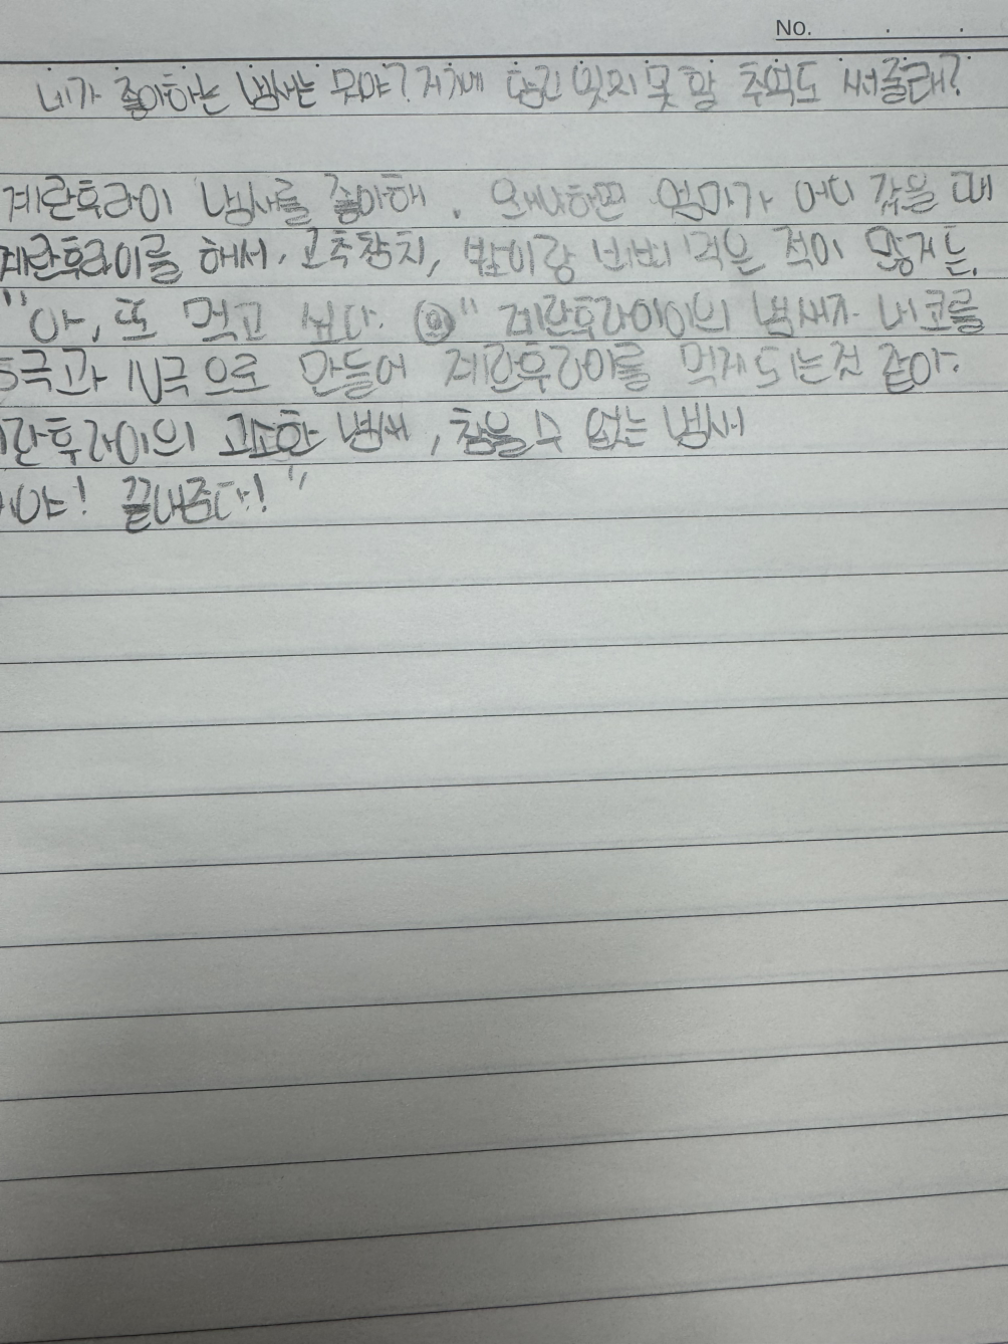 No. . .
네가 좋아하는 냄새는 뭐야? 거기에 담긴 잊지 못 할 추억도 써줄래?
계란후라이 냄새를 좋아해. 왜냐하면 엄마가 어디 갔을 때
계란후라이를 해서, 고추참치, 밥이랑 비벼 먹은 적이 많거든.
"아, 또 먹고 싶다. " 계란후라이이의 냄새가 내 코를
S극과 N극으로 만들어 계란후라이를 먹게 되는것 같아.
란후라이의 고소한 냄새, 참을 수 없는 냄새
이야! 끝내준다!"